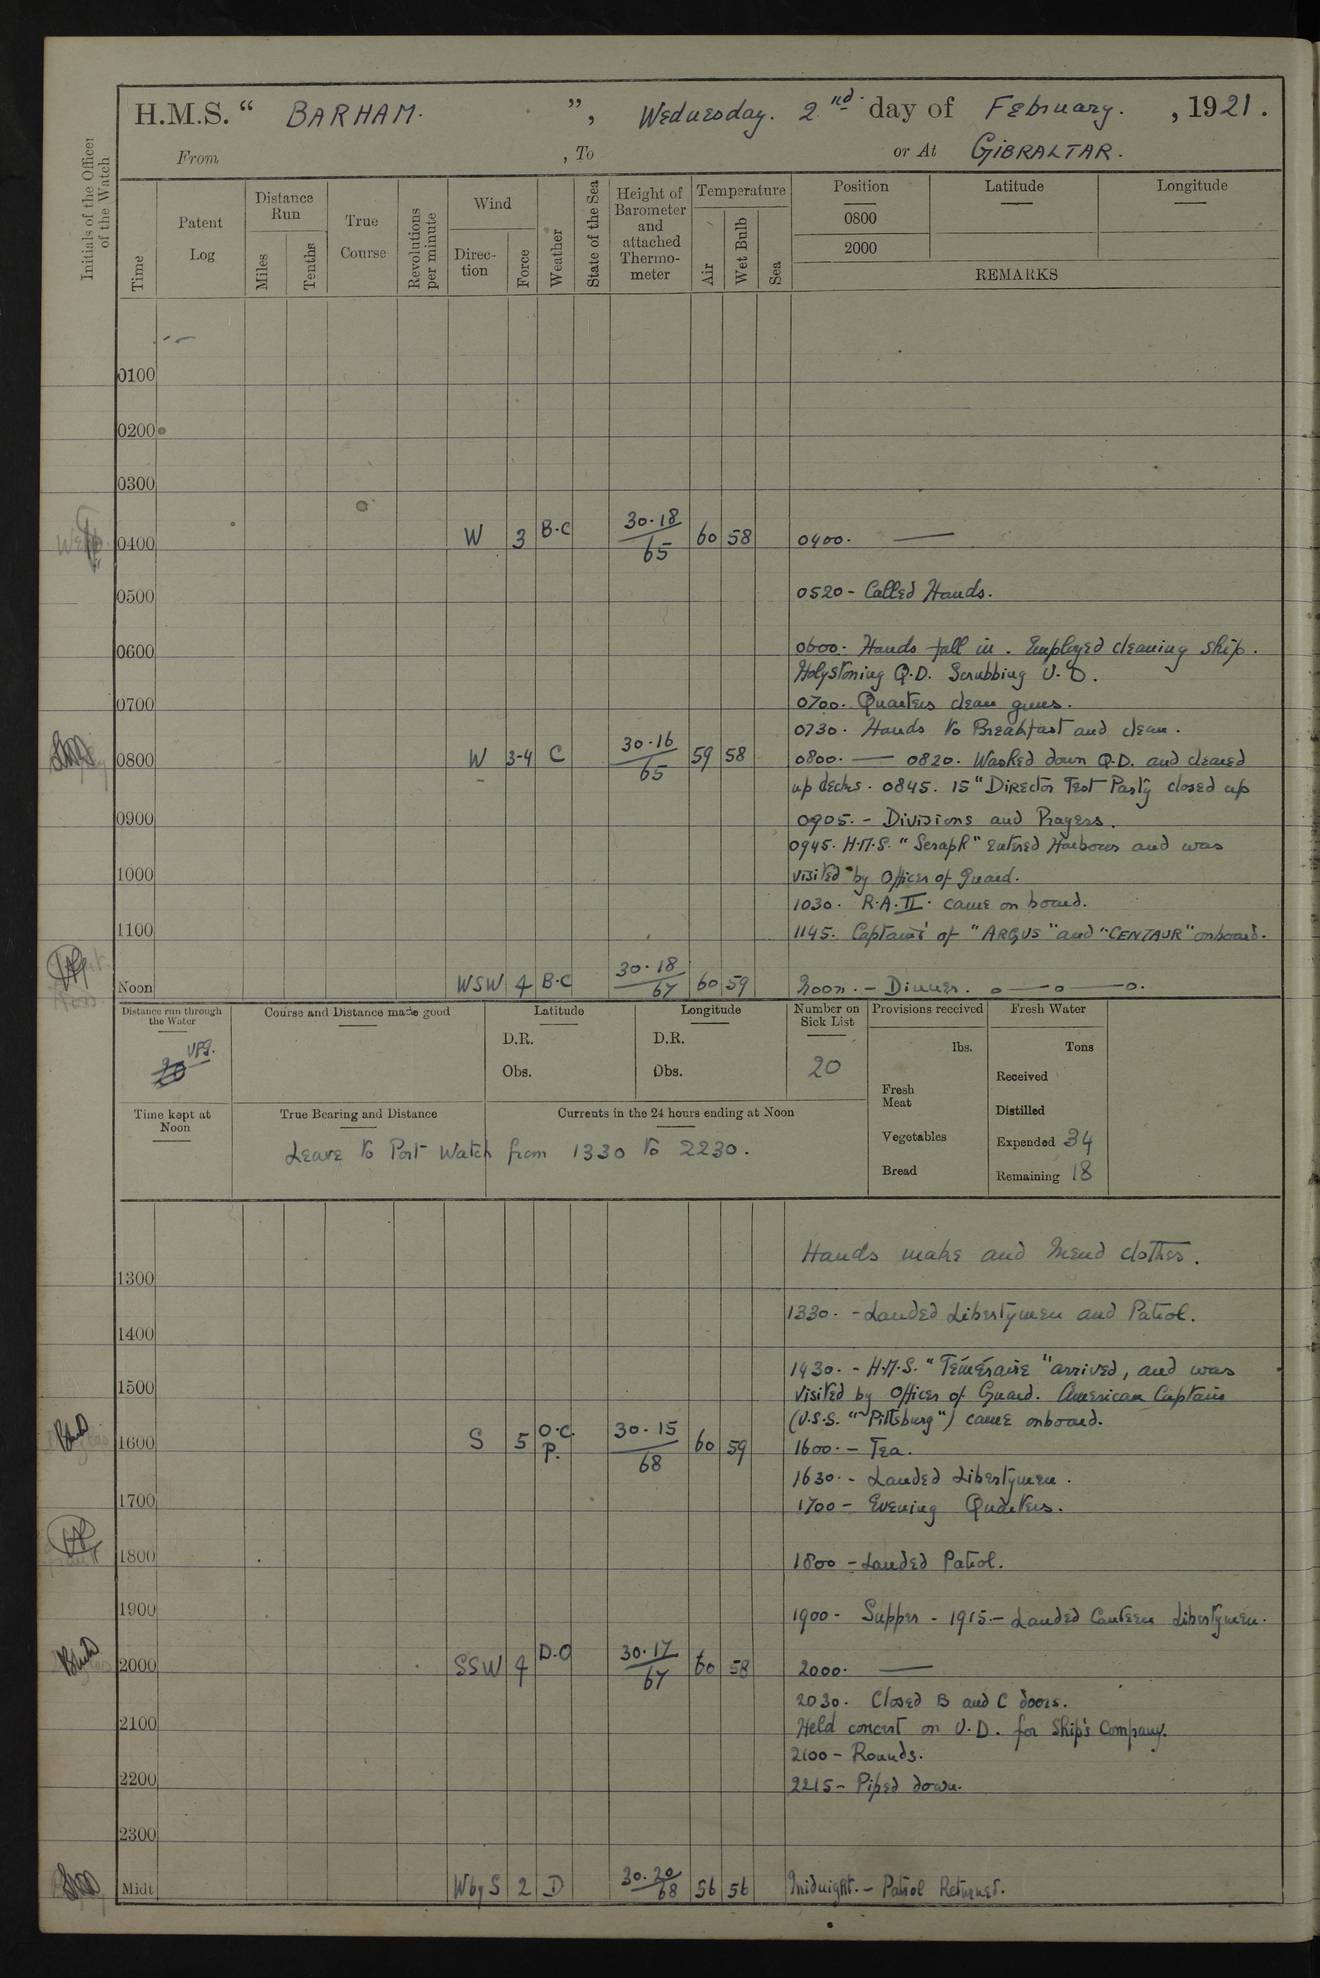 H.M.S. “ BARHAM. ”, Wednesday. 2nd. day of February. , 1921.
From , To or At GIBRALTAR.
Initials of the Officer of the Watch
Time
Patent Log
Distance Run
Miles
Tenths
True Course
Revolutions per minute
Wind
Direc-tion
Force
Weather
State of the Sea
Height of Barometer and attached Thermo-meter
Temperature
Air
Wet Bulb
Sea
Position
Latitude
Longitude
0800
2000
REMARKS
0100
0200
0300
0400 W 3 B.C 30.18 65 60 58 0400. —
0500 0520 - Called Hands.
0600 0600. Hands fall in. Employed cleaning ship.
Holystoning Q.D. Scrubbing U.D.
0700 0700. Quarters clean guns.
0730. Hands to Breakfast and clean.
0800 W 3-4 C 30.16 65 59 58 0800. — 0820. Washed down Q.D. and cleared
up decks. 0845. 15" Director Test Party closed up
0900 0905. - Divisions and Prayers.
0945. H.M.S. "Seraph" entered Harbour and was
1000 visited by Officer of Guard.
1030. R.A.II. came on board.
1100 1145. Captains of "ARGUS" and "CENTAUR" onboard.
Noon WSW 4 B.C 30.18 67 60 59 Noon. - Dinner.
Distance run through the Water
Course and Distance made good
Latitude
Longitude
Number on Sick List
Provisions received
Fresh Water
D.R.
D.R.
lbs.
Tons
Obs.
Obs.
20
Fresh Meat
Received
Distilled
Time kept at Noon
True Bearing and Distance
Currents in the 24 hours ending at Noon
Vegetables
Expended 34
Bread
Remaining 18
Leave to Port Watch from 1330 to 2230.
Hands make and mend clothes.
1300
1330. - Landed Libertymen and Patrol.
1400
1430. - H.M.S. "Téméraire" arrived, and was
1500 visited by Officer of Guard. American Captain
(U.S.S. "Pittsburg") came onboard.
1600 S 5 O.C. P. 30.15 68 60 59 1600. - Tea.
1630. - Landed Libertymen.
1700 1700 - Evening Quarters.
1800 1800 - Landed Patrol.
1900 1900 - Supper - 1915. - Landed Canteen Libertymen.
2000 SSW 4 D.O 30.17 67 60 58 2000. —
2030. Closed B and C doors.
2100 Held concert on U.D. for Ship's Company.
2100 - Rounds.
2200 2215 - Piped down.
2300
Midt W by S 2 D 30.20 68 56 56 Midnight. - Patrol Returned.